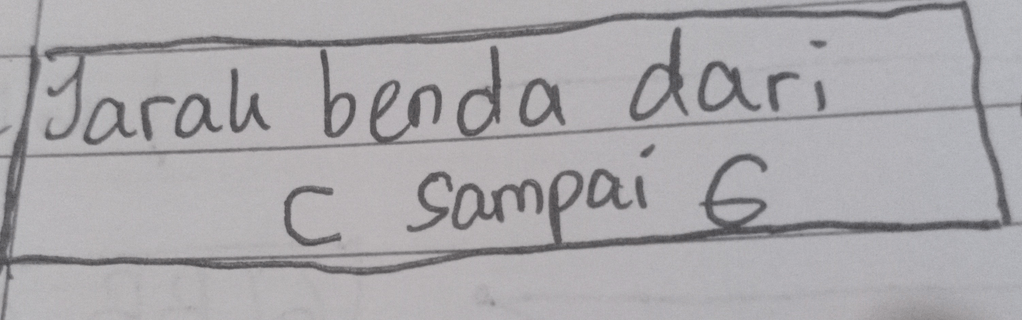 Jarak benda dari
C sampai G